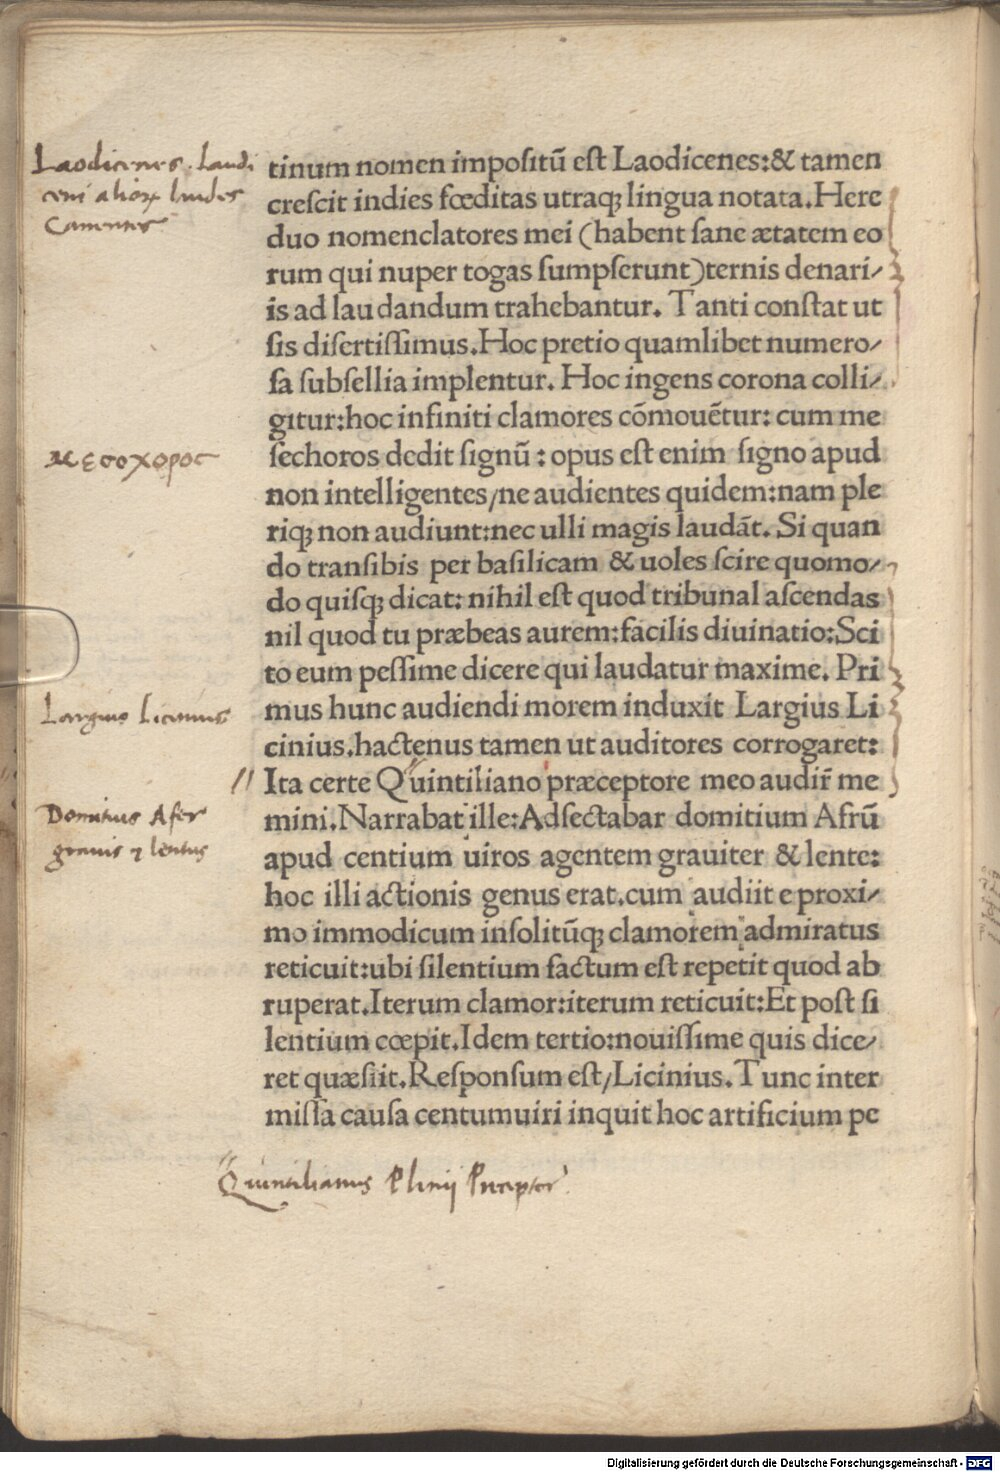 Laodicenes. Laudi
ceni alioꝝ laudes
Canentes
tinum nomen impositũ est Laodicenes:& tamen
crescit indies fœditas utraqꝫ lingua notata. Here
duo nomenclatores mei (habent sane ætatem eo
rum qui nuper togas sumpserunt)ternis denari/
is ad laudandum trahebantur. Tanti constat ut
sis disertissimus. Hoc pretio quamlibet numero/
sa subsellia implentur. Hoc ingens corona colli/
gitur:hoc infiniti clamores cõmouẽtur: cum me
μεσοχορος
sechoros dedit signũ : opus est enim signo apud
non intelligentes/ne audientes quidem:nam ple
riqꝫ non audiunt:nec ulli magis laudãt. Si quan
do transibis per basilicam & uoles scire quomo/
do quisqꝫ dicat: nihil est quod tribunal ascendas
nil quod tu præbeas aurem:facilis diuinatio:Sci
to eum pessime dicere qui laudatur maxime. Pri
Largius Licinius
mus hunc audiendi morem induxit Largius Li
cinius.hactenus tamen ut auditores corrogaret:
Ita certe Quintiliano præceptore meo audir̃ me
Domitius Afer
grauis & lentus
mini. Narrabat ille:Adsectabar domitium Afrũ
apud centium uiros agentem grauiter & lente:
hoc illi actionis genus erat.cum audiit e proxi/
mo immodicum insolitũqꝫ clamorem admiratus
reticuit:ubi silentium factum est repetit quod ab
ruperat.Iterum clamor:iterum reticuit:Et post si
lentium cœpit.Idem tertio:nouissime quis dice/
ret quæsiit.Responsum est/Licinius. Tunc inter
missa causa centumuiri inquit hoc artificium pe
Quintilianus Plinij Præceptor
Digitalisierung gefördert durch die Deutsche Forschungsgemeinschaft - DFG